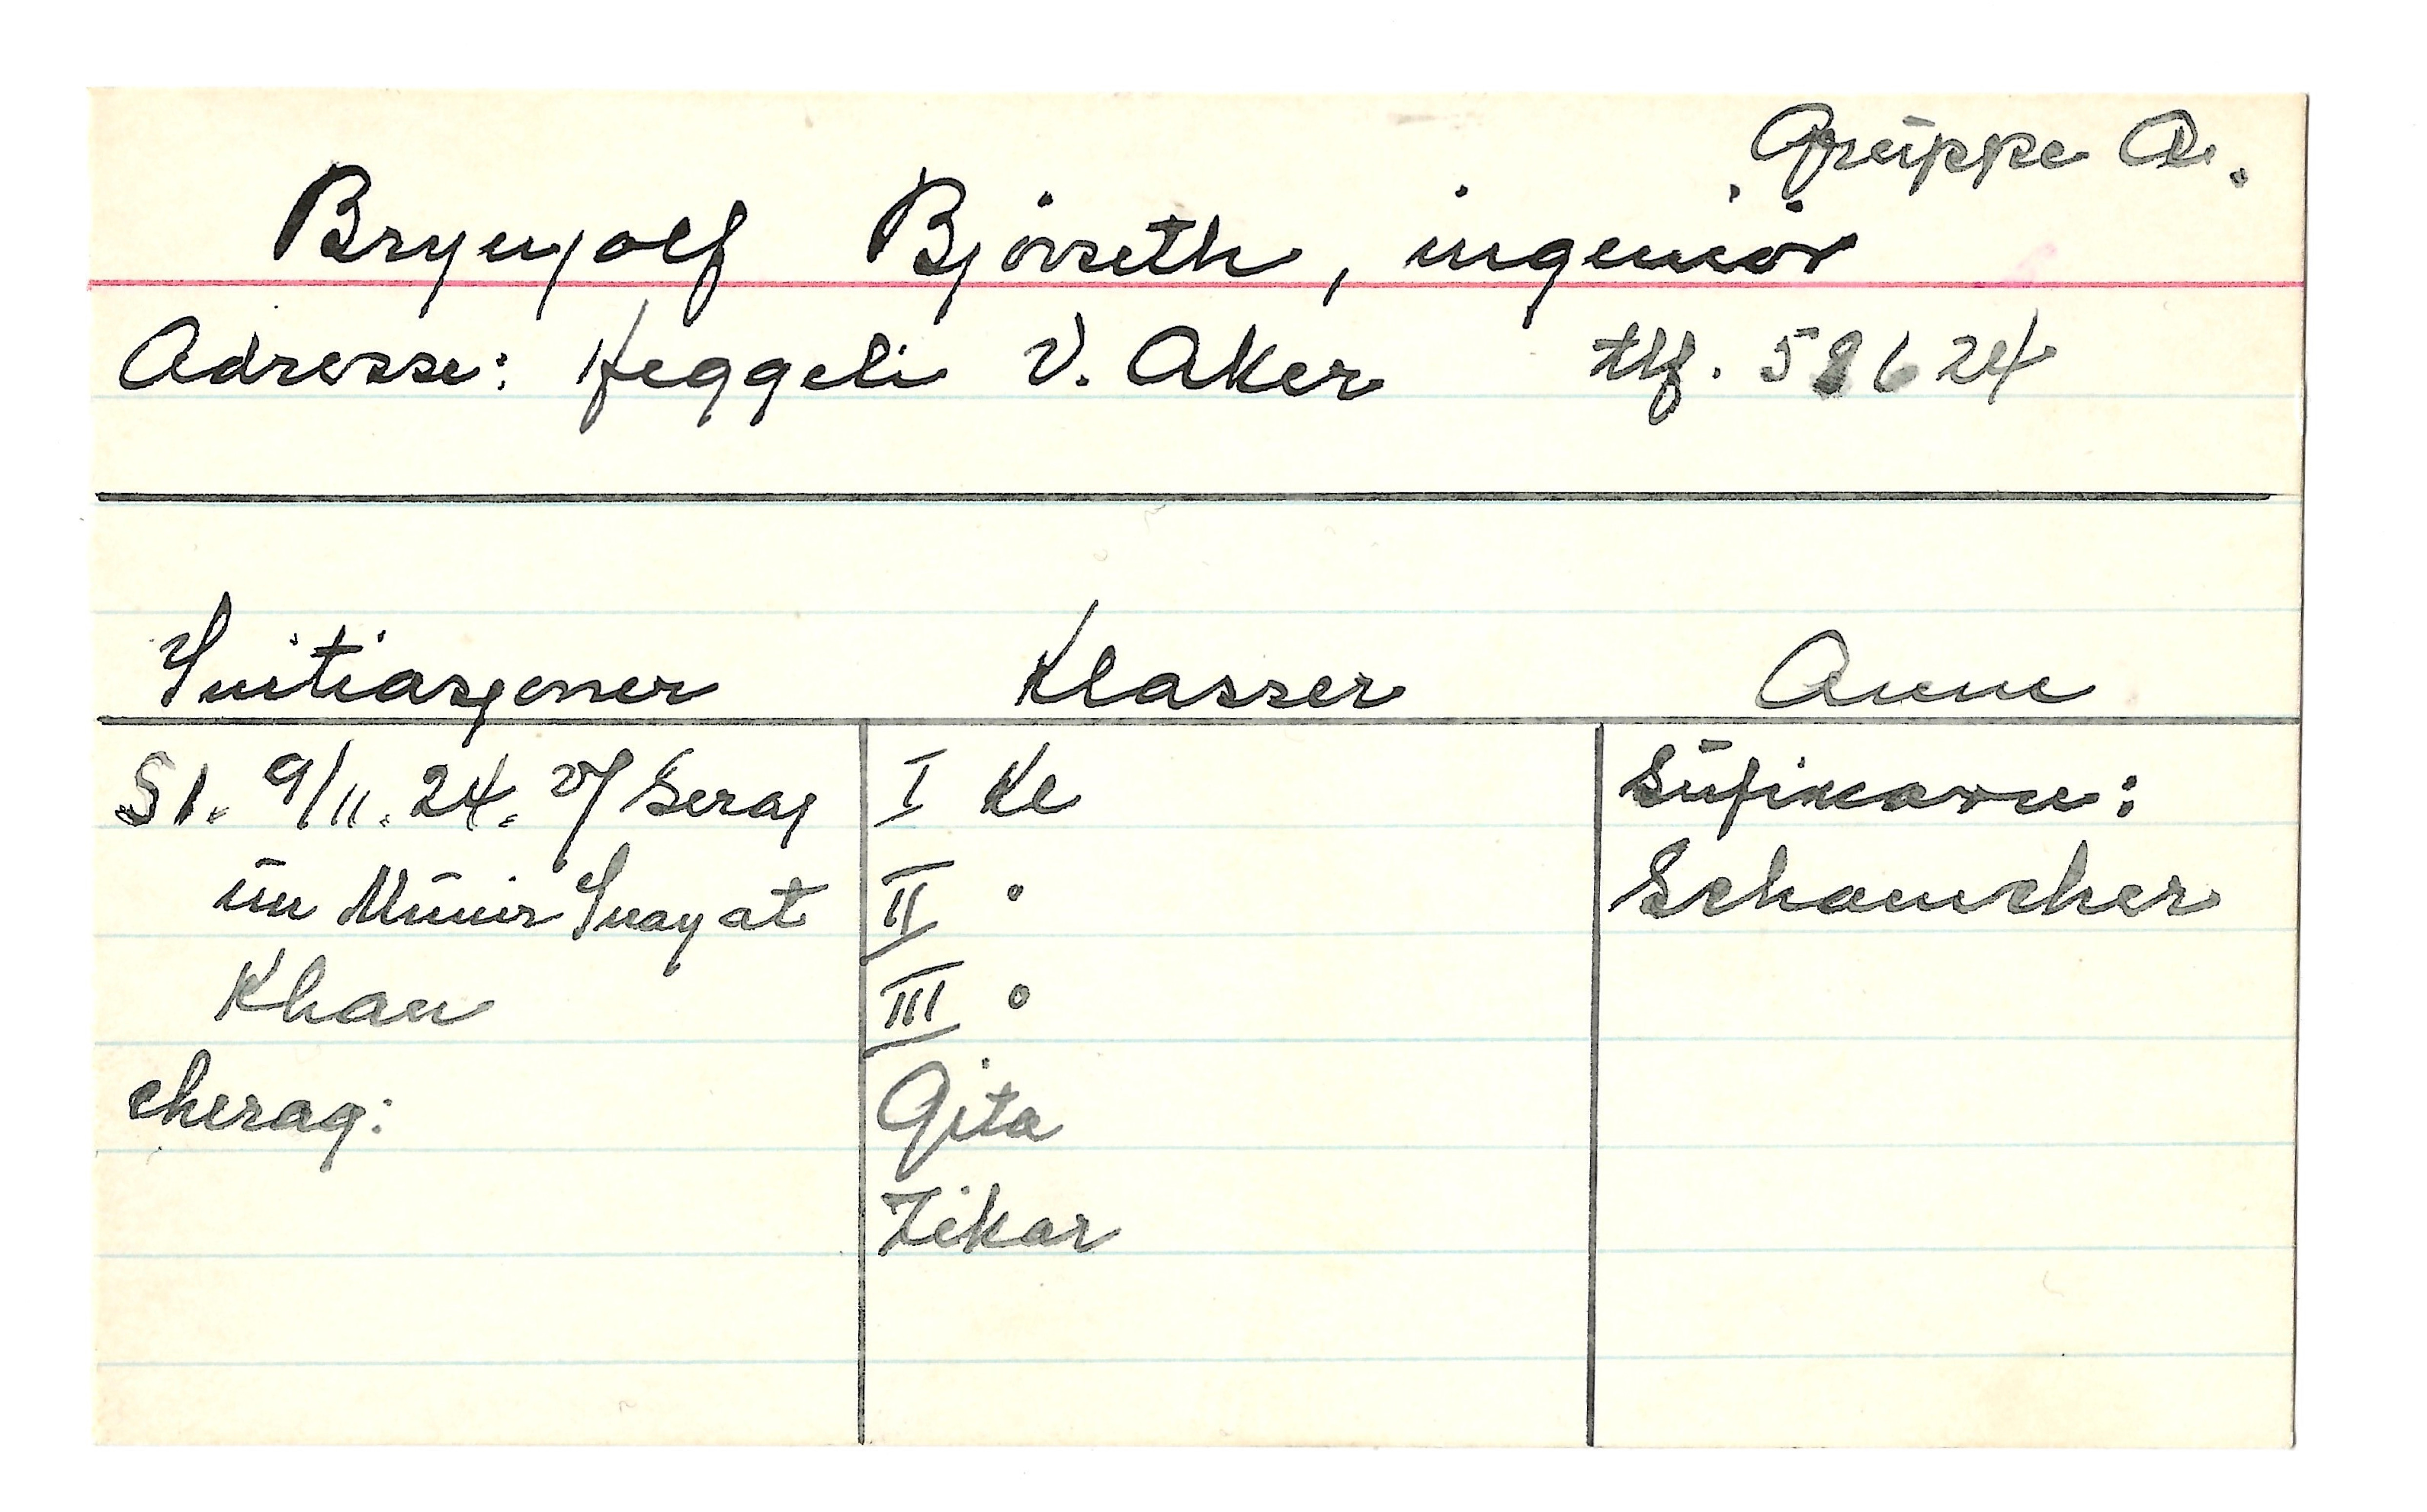 Gruppe A.
Brynjolf Bjørseth, ingeniør
Adresse: Heggeli V. Aker tlf. 58624
Initiasjoner Klasser Annet
S1. 9/11. 24. v/ Seraj
un Munir Inayat
Khan
cherag:
I Kl
II "
III "
Gita
Zikar
Sufinavn:
Schamcher